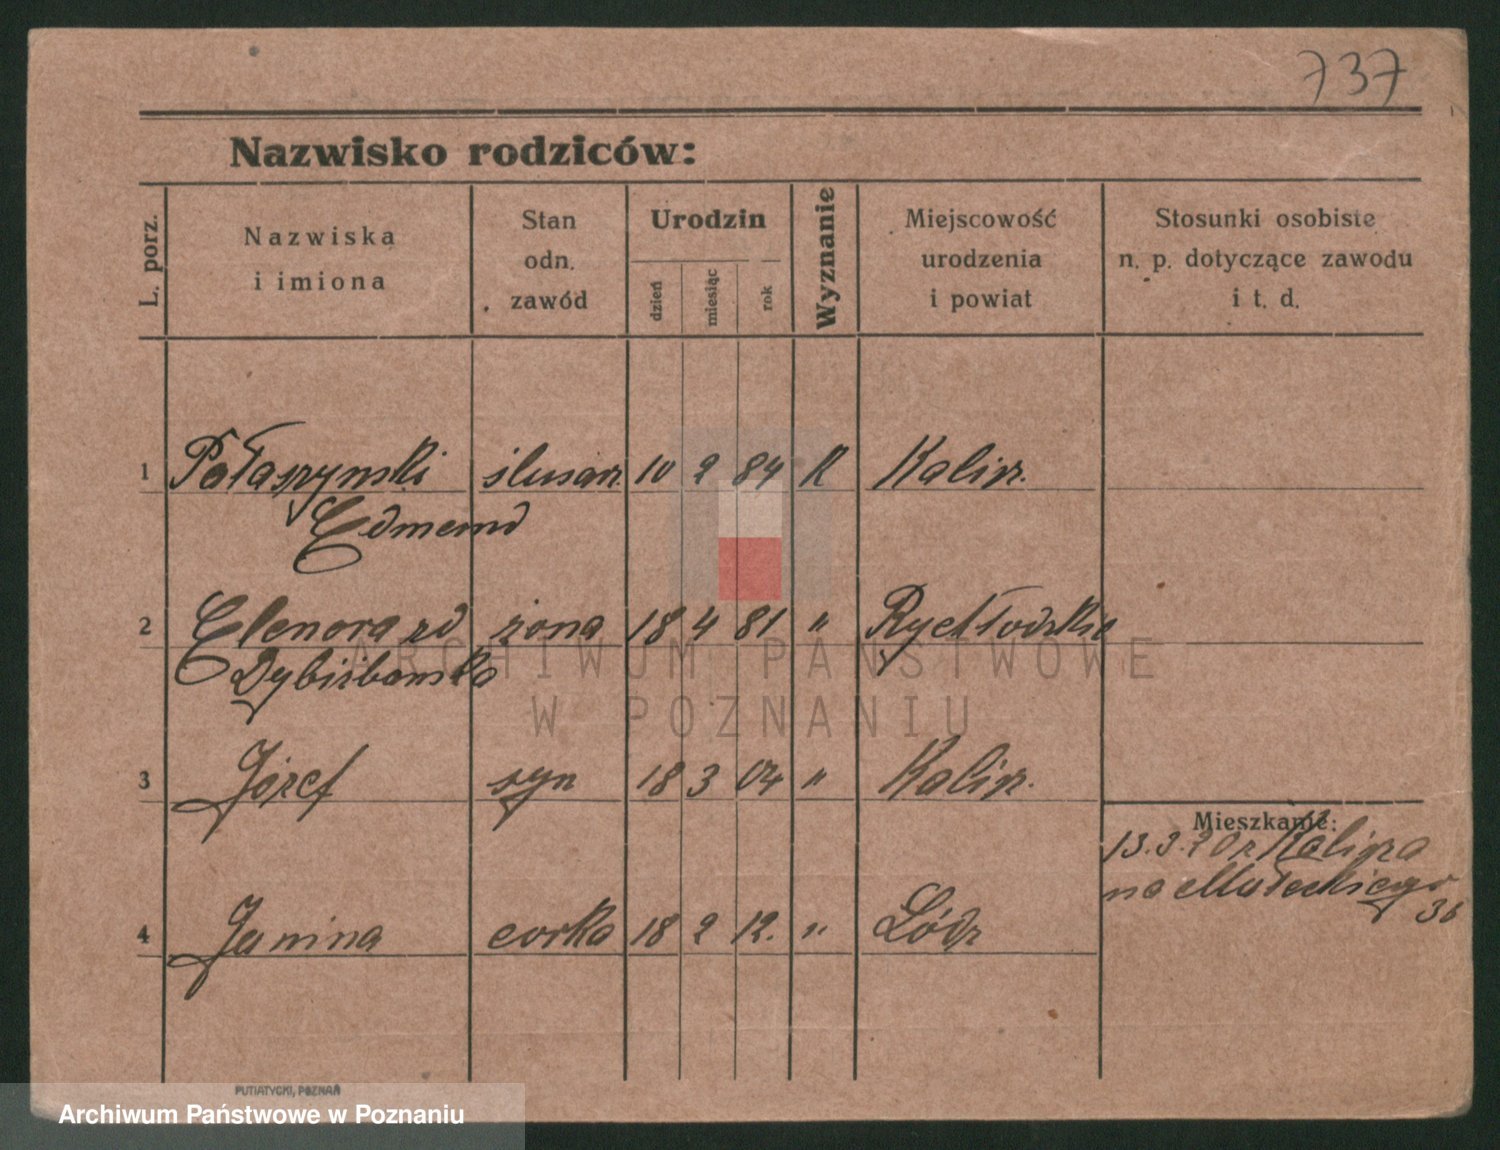 737
Nazwisko rodziców:
L. porz.
Nazwiska
i imiona
Stan
odn.
zawód
Urodzin
dzień
miesiąc
rok
Wyznanie
Miejscowość
urodzenia
i powiat
Stosunki osobiste
n. p. dotyczące zawodu
i t. d.
1 Pałaszynski ślusarz. 10 2 84 K Kalisz.
Edmund
2 Elenora zd żona 18 4 81 "
3 Józef syn 18 3 04 " Kalisz.
Mieszkanie:
13.3.20 z Kalisza
36
4 Janina corka 18 2 12. " Łódz
ARCHIWUM PAŃSTWOWE
W POZNANIU
PUTIATYCKI, POZNAŃ
Archiwum Państwowe w Poznaniu